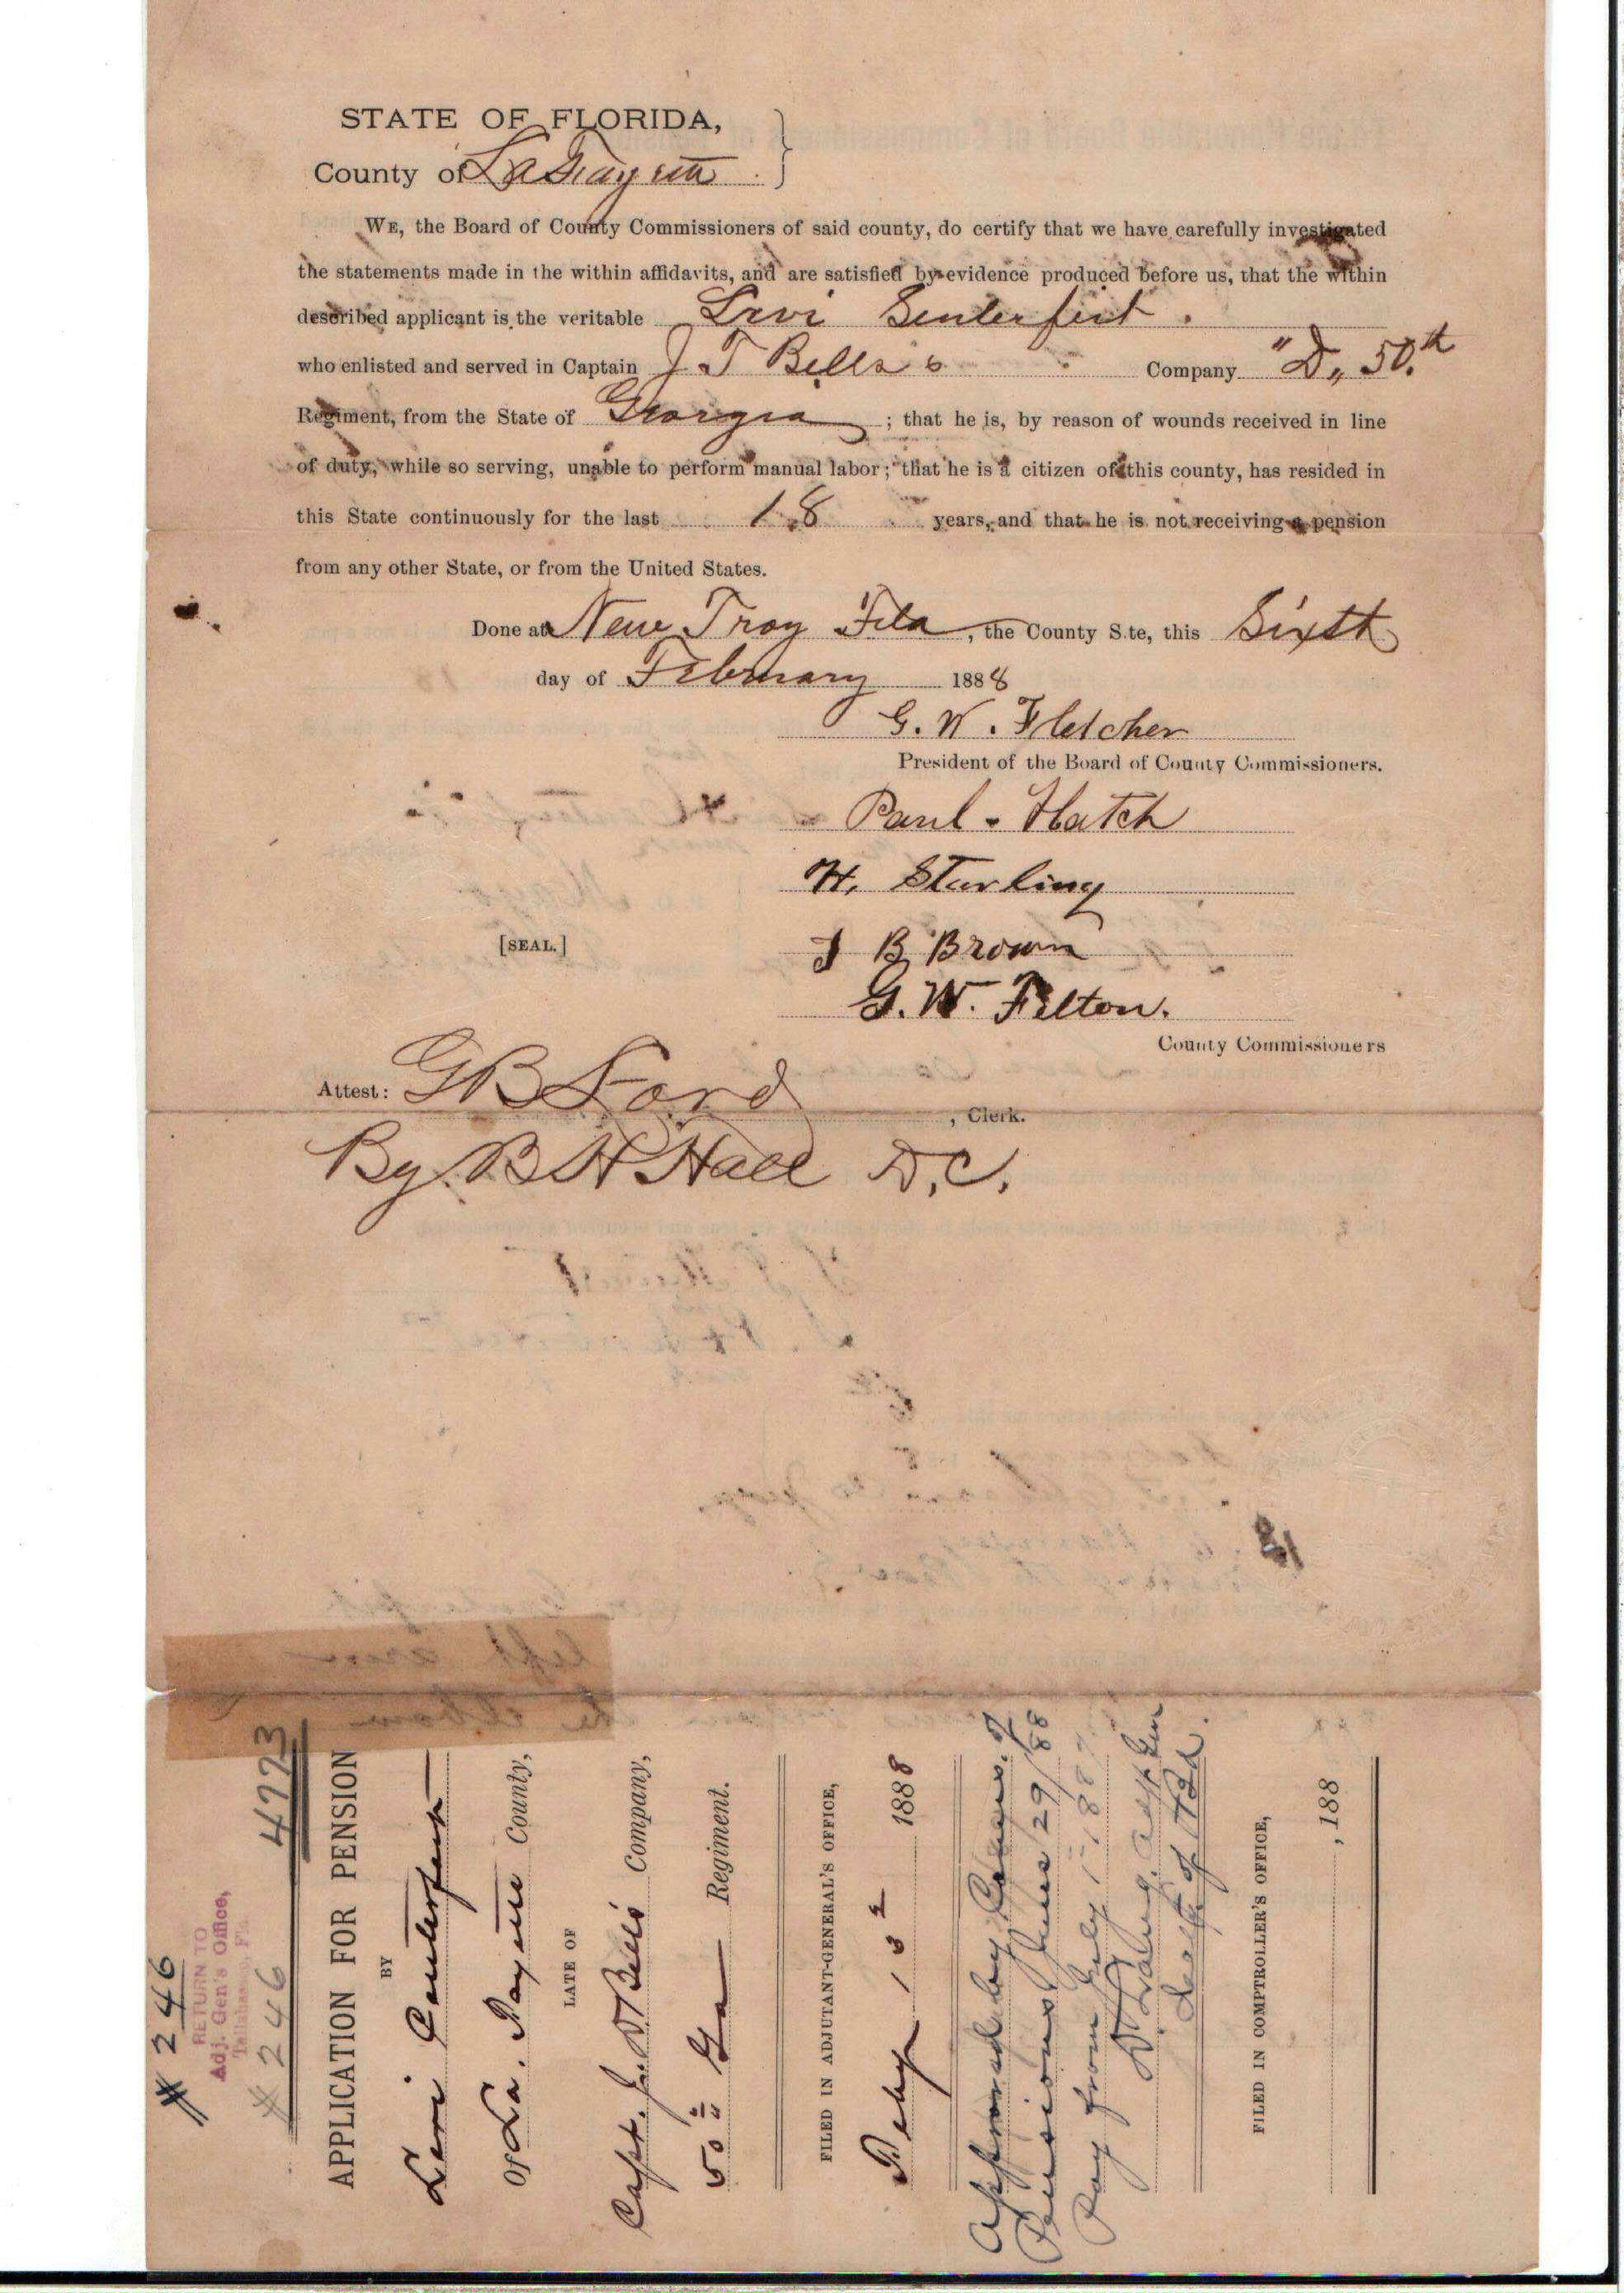 STATE OF FLORIDA,
County of LaFayette
WE, the Board of County Commissioners of said county, do certify that we have carefully investigated
the statements made in the within affidavits, and are satisfied by evidence produced before us, that the within
described applicant is the veritable Levi Senterfeit.
who enlisted and served in Captain J T Bells's Company "D„ 50.th
Regiment, from the State of Georgia ; that he is, by reason of wounds received in line
of duty, while so serving, unable to perform manual labor; that he is a citizen of this county, has resided in
this State continuously for the last 18 years, and that he is not receiving a pension
from any other State, or from the United States.
Done at New Troy Fla, the County S.te, this Sixth
day of February 1888
G. W. Fletcher
President of the Board of County Commissioners.
Paul Hatch
H. Sturling
J B Brown
[SEAL.]
G. W. Felton.
County Commissioners
Attest: G B Ford, Clerk.
By B H Hall D.C.
# 246
RETURN TO
Adj. Gen's Office,
Tallahassee, Fla.
# 246 4773
APPLICATION FOR PENSION
BY
Levi
Of La. Fayette County,
LATE OF
Capt. J. Bell's Company,
50" Ga Regiment.
FILED IN ADJUTANT-GENERAL'S OFFICE,
Feby 1888
Approved by of
Pensions June 29/88
Pay from July 1 188
Lang. Adjt Gen
of Bd.
FILED IN COMPTROLLER'S OFFICE,
, 188